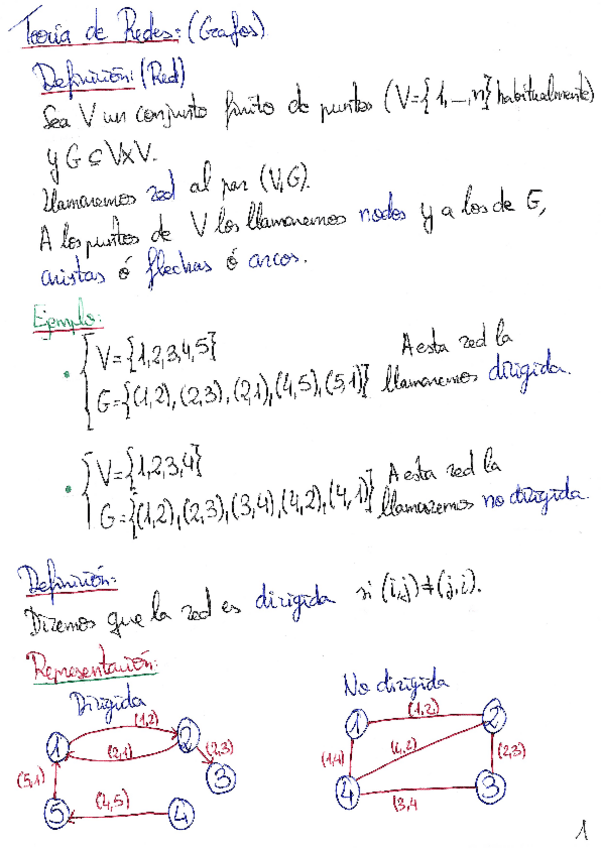 Teoría de Redes: (Grafos)
Definición: (Red)
Sea V un conjunto finito de puntos (V={1,...,n} habitualmente)
y G ⊆ V×V.
Llamaremos red al par (V,G).
A los puntos de V los llamaremos nodos y a los de G,
aristas ó flechas ó arcos.
Ejemplo:
• { V={1,2,3,4,5} A esta red la
G={(1,2),(2,3),(2,1),(4,5),(5,1)} llamaremos dirigida.
• { V={1,2,3,4} A esta red la
G={(1,2),(2,3),(3,4),(4,2),(4,1)} llamaremos no dirigida.
Definición:
Diremos que la red es dirigida si (i,j)≠(j,i).
Representación:
Dirigida
No dirigida
1 (1,2) 2
(2,1) (2,3)
3
(5,1)
5 (4,5) 4
1 (1,2) 2
(1,4) (4,2) (2,3)
4 (3,4 3
1